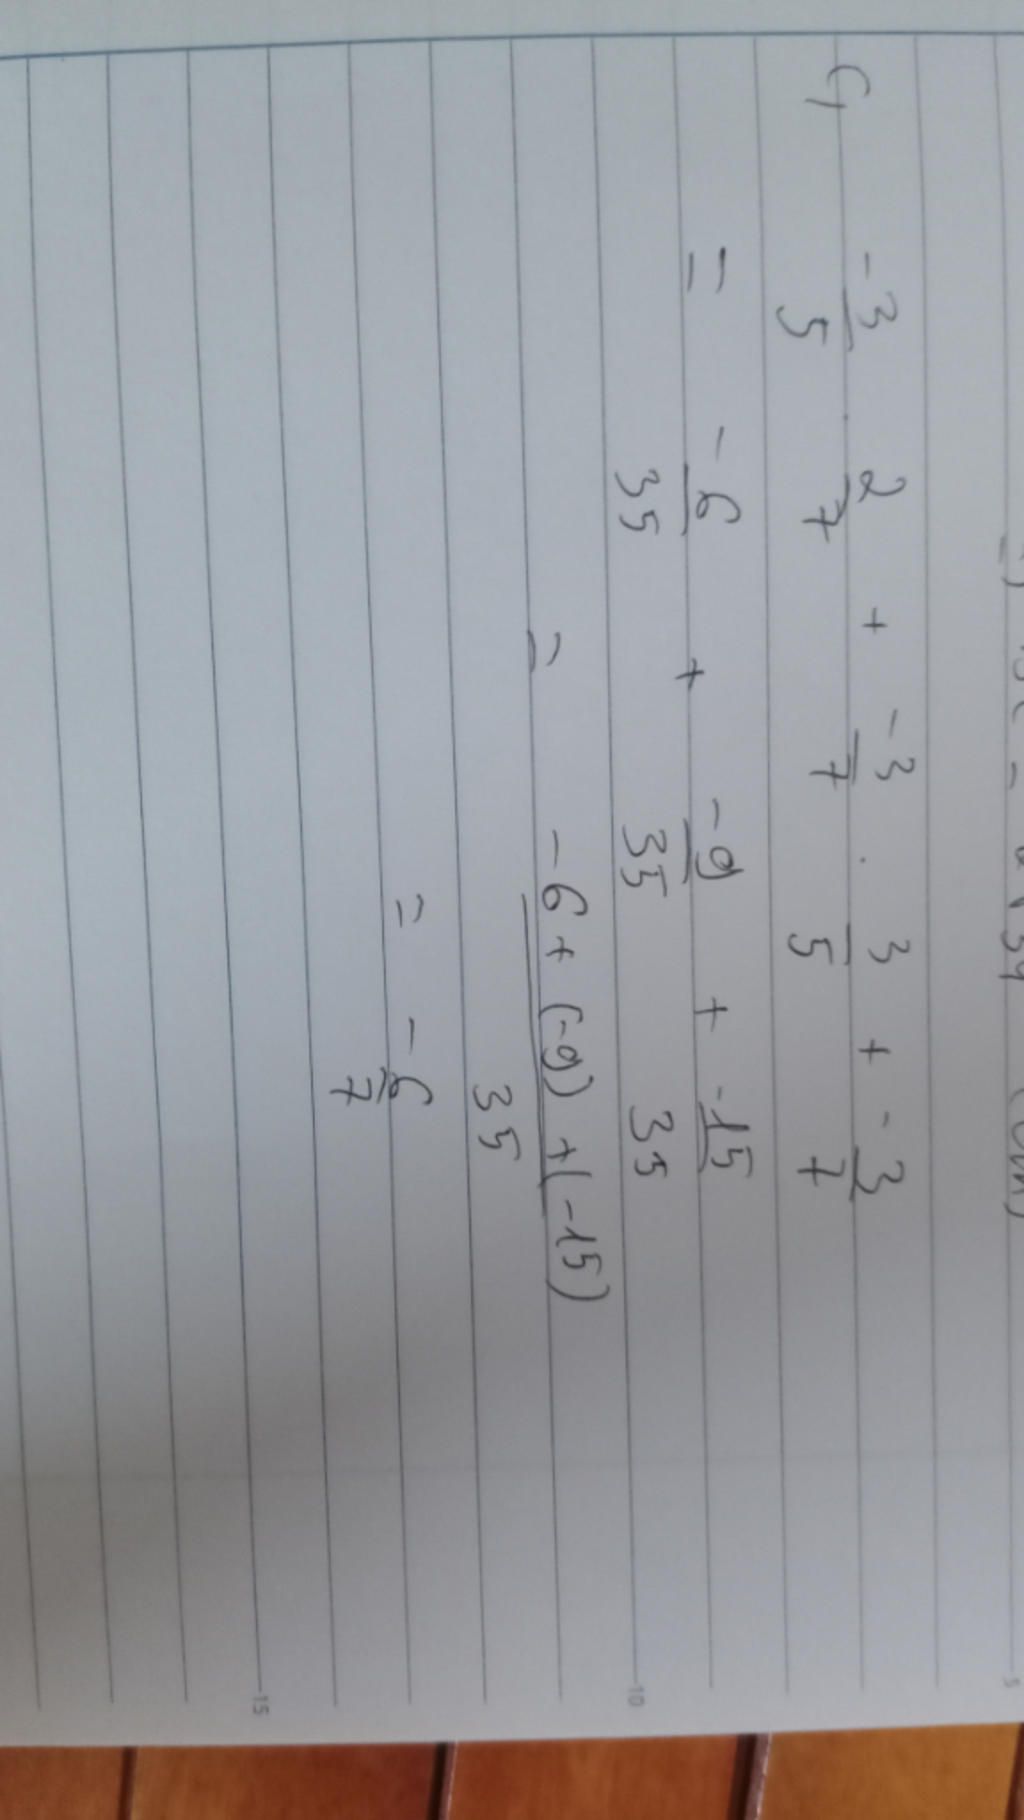 c, -3/5 . 2/7 + -3/7 . 3/5 + -3/7
= -6/35 + -9/35 + -15/35
= -6 + (-9) + (-15) / 35
= -6/7
5
10
15